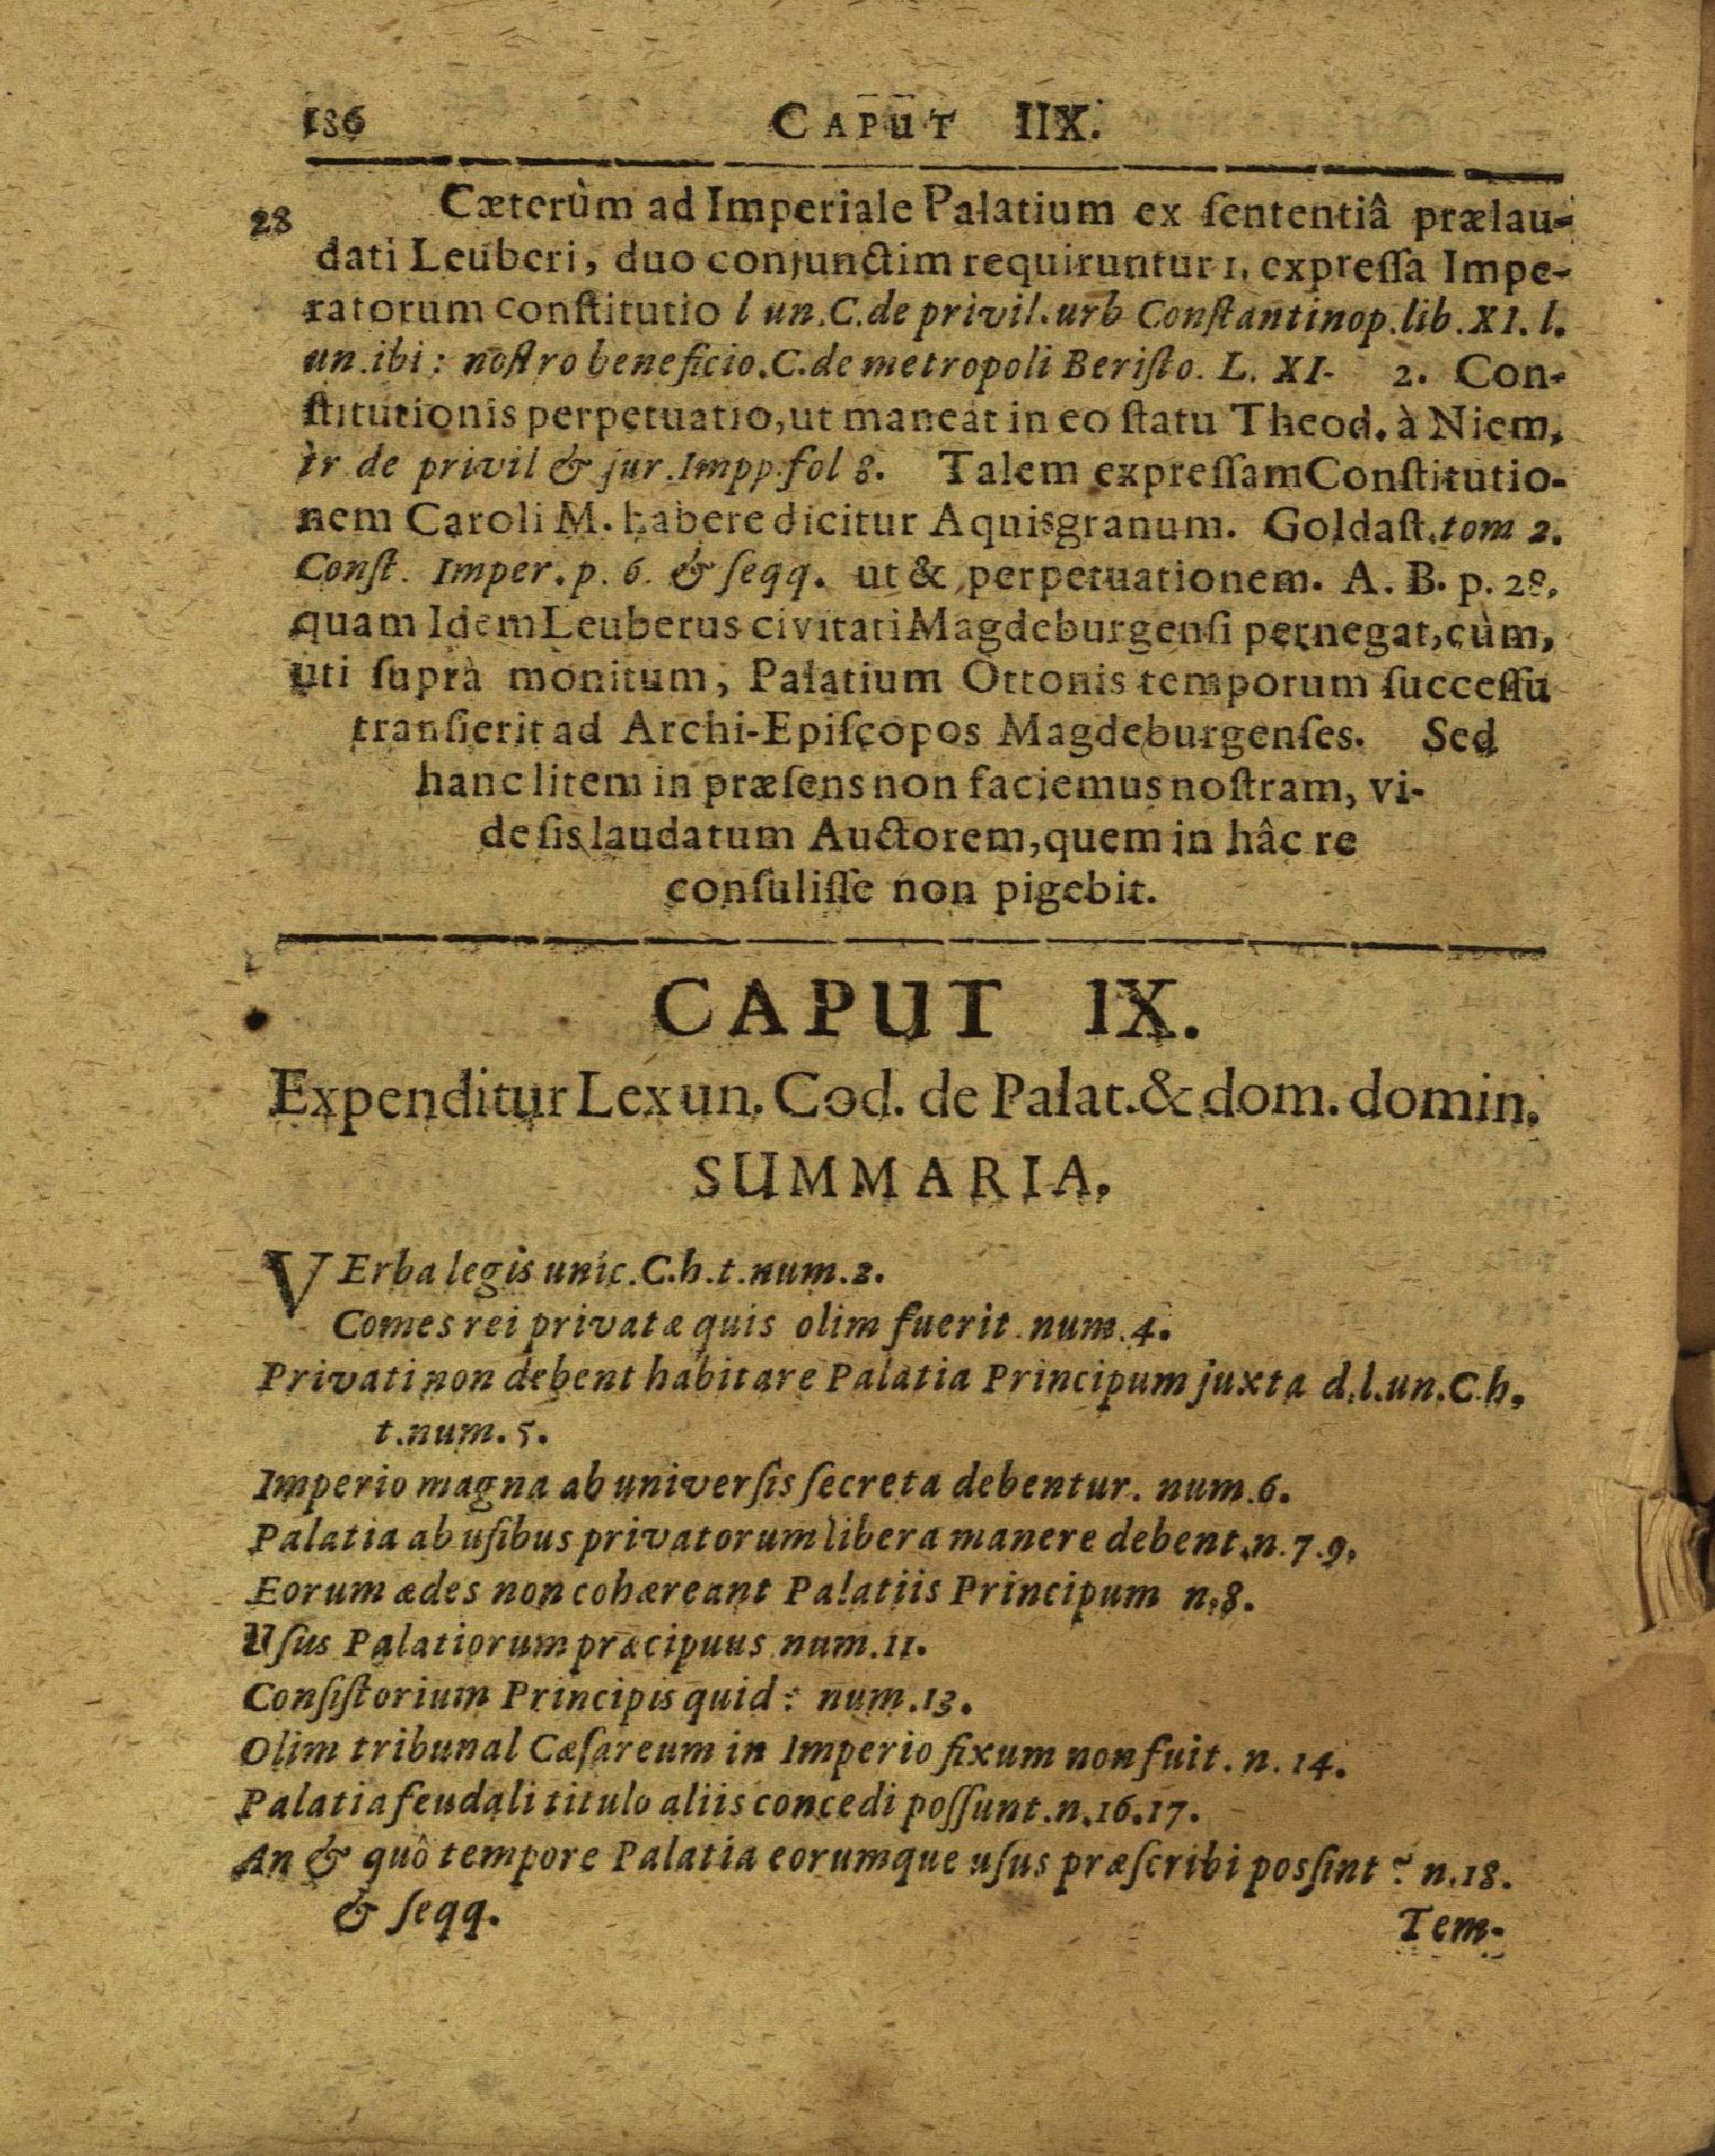 186 CAPUT IIX.
28 Cæterùm ad Imperiale Palatium ex ſententiâ prælau-
dati Leuberi, duo conjunctim requiruntur 1. expreſſa Impe-
ratorum conſtitutio l un. C. de privil. urb Conſtantinop. lib. XI. l.
un. ibi: noſtro beneficio. C. de metropoli Beriſto. L. XI- 2. Con-
ſtitutionis perpetuatio, ut maneat in eo ſtatu Theod. à Niem,
tr de privil & jur. Impp. fol 8. Talem expreſſam Conſtitutio-
nem Caroli M. habere dicitur Aquisgranum. Goldaſt. tom 2.
Conſt. Imper. p. 6. & ſeqq. ut & perpetuationem. A. B. p. 28.
quam Idem Leuberus civitati Magdeburgenſi pernegat, cùm,
uti ſuprà monitum, Palatium Ottonis temporum ſucceſſu
tranſierit ad Archi-Epiſcopos Magdeburgenſes. Sed
hanc litem in præſens non faciemus noſtram, vi-
de ſis laudatum Auctorem, quem in hâc re
conſuliſſe non pigebit.
CAPUT IX.
Expenditur Lex un. Cod. de Palat. & dom. domin.
SUMMARIA.
VErba legis unic. C. h. t. num. 2.
Comes rei privatæ quis olim fuerit. num. 4.
Privati non debent habitare Palatia Principum juxta d. l. un. C. h.
t. num. 5.
Imperio magna ab univerſis ſecreta debentur. num. 6.
Palatia ab uſibus privatorum libera manere debent. n. 7. 9.
Eorum ædes non cohæreant Palatiis Principum n. 8.
Uſus Palatiorum præcipuus num. 11.
Conſiſtorium Principis quid? num. 13.
Olim tribunal Cæſareum in Imperio fixum non fuit. n. 14.
Palatia feudali titulo aliis concedi poſſunt. n. 16. 17.
An & quô tempore Palatia eorumque uſus præſcribi posſint? n. 18.
& ſeqq.
Tem-